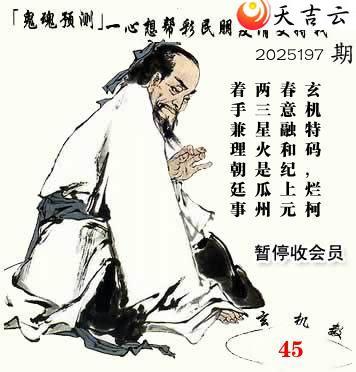 天吉云
「鬼魂预测」一心想帮彩民朋
2025197 期
玄机特码，烂柯
春意融和纪上元
两三星火是瓜州
着手兼理朝廷事
暂停收会员
玄机数
45